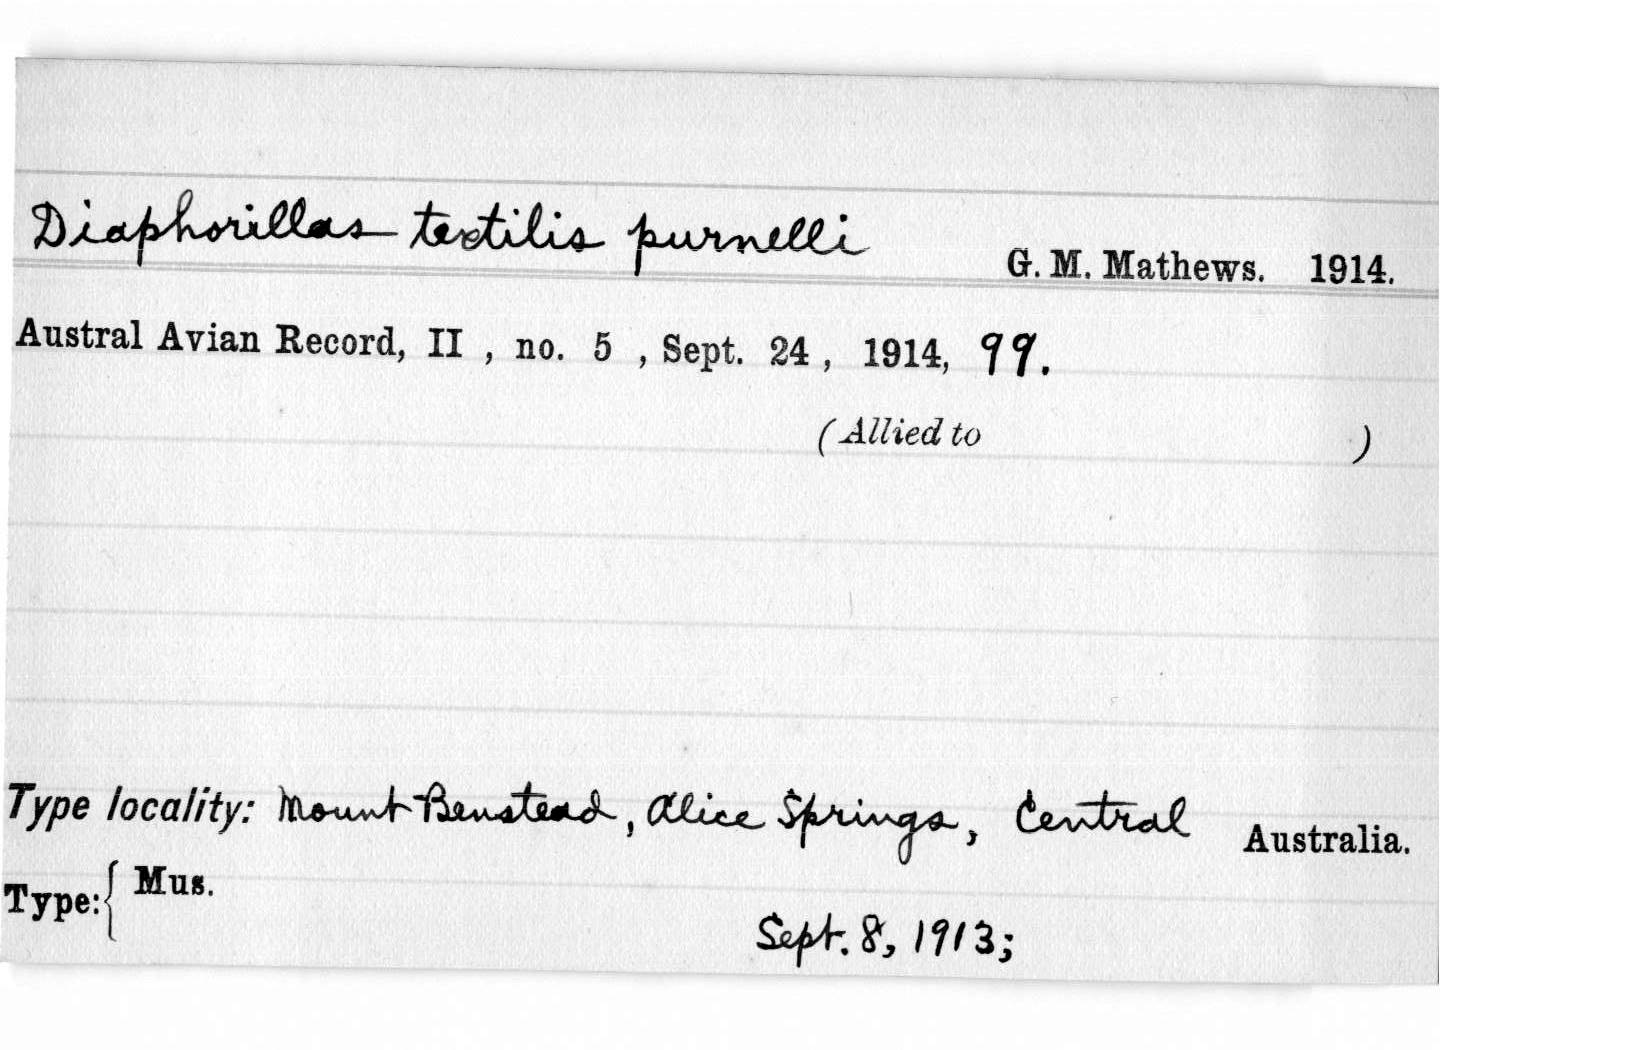 Diaphorillas textilis purnelli G. M. Mathews. 1914.
Austral Avian Record, II , no. 5 , Sept. 24 , 1914, 99.
(Allied to )
Type locality: Mount Benstead, Alice Springs, Central Australia.
Type:{ Mus.
Sept. 8, 1913;